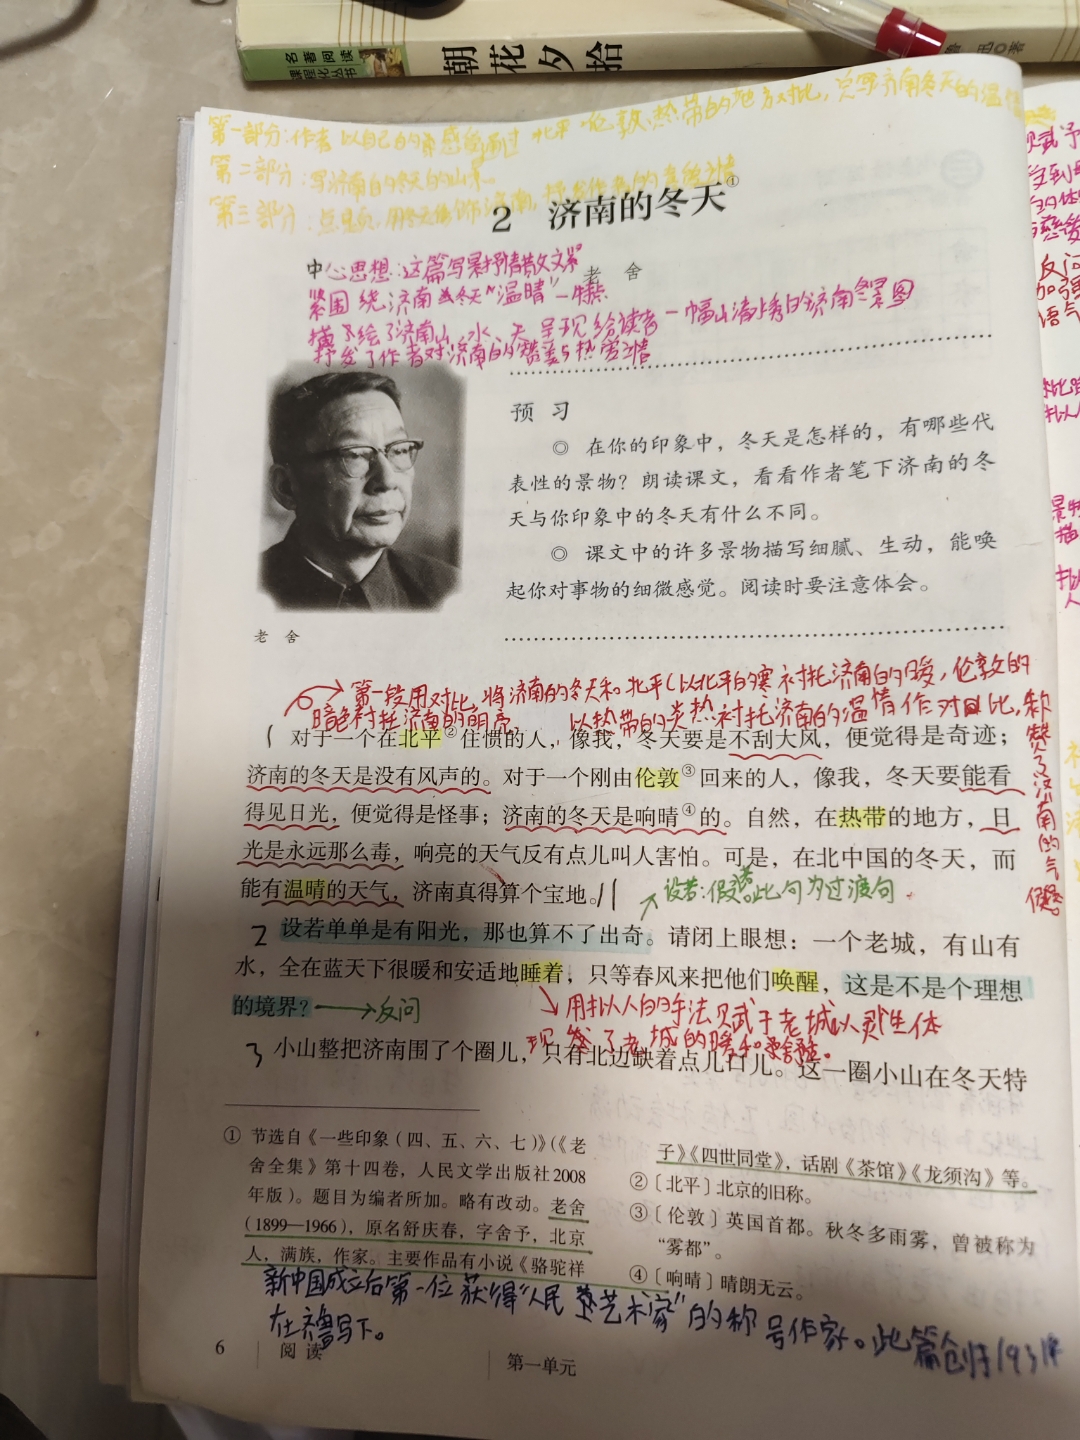 名著阅读
课程化丛书
朝花夕拾
第一部分:作者以自己的亲感受通过北平、伦敦、热带的地方对比,总写济南冬天的温
第二部分:写济南的冬天的山水。
第三部分:点
2 济南的冬天①
老 舍
中心思想:这篇写景抒情散文
紧围绕济南冬天“温晴”一特点
描绘了济南山、水、天呈现给读者一幅山清水秀的济南冬景图
抒发了作者对济南的赞美与热爱之情
预 习
◎ 在你的印象中,冬天是怎样的,有哪些代
表性的景物?朗读课文,看看作者笔下济南的冬
天与你印象中的冬天有什么不同。
◎ 课文中的许多景物描写细腻、生动,能唤
起你对事物的细微感觉。阅读时要注意体会。
老 舍
第一段用对比,将济南的冬天和北平(以北平的寒衬托济南的暖,伦敦的
暗色衬托济南的明亮 以热带的炎热衬托济南的温情作对比,称
赞了济南的气候。
1 对于一个在北平②住惯的人,像我,冬天要是不刮大风,便觉得是奇迹;
济南的冬天是没有风声的。对于一个刚由伦敦③回来的人,像我,冬天要能看
得见日光,便觉得是怪事;济南的冬天是响晴④的。自然,在热带的地方,日
光是永远那么毒,响亮的天气反有点儿叫人害怕。可是,在北中国的冬天,而
能有温晴的天气,济南真得算个宝地。//
设若:假若。此句为过渡句
2 设若单单是有阳光,那也算不了出奇。请闭上眼想:一个老城,有山有
水,全在蓝天下很暖和安适地睡着,只等春风来把他们唤醒,这是不是个理想
的境界?→反问
用拟人的手法赋于老城以灵性生体
现了老城的暖和安舒适。
3 小山整把济南围了个圈儿,只有北边缺着点儿口儿。这一圈小山在冬天特
① 节选自《一些印象(四、五、六、七)》(《老
舍全集》第十四卷,人民文学出版社2008
年版)。题目为编者所加。略有改动。老舍
(1899—1966),原名舒庆春,字舍予,北京
人,满族,作家。主要作品有小说《骆驼祥
子》《四世同堂》,话剧《茶馆》《龙须沟》等。
②〔北平〕北京的旧称。
③〔伦敦〕英国首都。秋冬多雨雾,曾被称为
“雾都”。
④〔响晴〕晴朗无云。
新中国成立后第一位获得“人民艺术家”的称号作家。此篇创归1931年
在齐鲁写下。
6 阅读
第一单元
反问
加强
语气